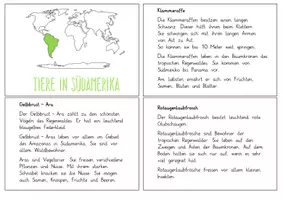 TIERE IN SÜDAMERIKA
Klammeraffe
Die Klammeraffen besitzen einen langen
Schwanz. Dieser hilft ihnen beim Klettern.
Sie schwingen sich mit ihren langen Armen
von Ast zu Ast.
So können sie bis 10 Meter weit springen.
Die Klammeraffen leben in den Baumkronen des
tropischen Regenwaldes. Sie kommen von
Südmexiko bis Panama vor.
Am liebsten ernährt er sich von Früchten,
Samen, Blüten und Blättern.
Gelbbrust - Ara
Der Gelbbrust - Ara zählt zu den schönsten
Vögeln des Regenwaldes. Er hat ein leuchtend
blaugelbes Federkleid.
Gelbbrust - Aras leben vor allem im Gebiet
des Amazonas in Südamerika. Sie sind vor
allem Waldbewohner.
Aras sind Vegetarier. Sie fressen verschiedene
Pflanzen und Nüsse. Mit ihrem starken
Schnabel knacken sie die Nüsse. Sie mögen
auch Samen, Knospen, Früchte und Beeren.
Rotaugenlaubfrosch
Der Rotaugenlaubfrosch besitzt leuchtend rote
Glubschaugen.
Rotaugenlaubfrösche sind Bewohner der
tropischen Regenwälder. Sie leben auf den
Zweigen und Ästen der Baumkronen. Auf dem
Boden halten sie sich nur auf, wenn es dort
viel regnet.
Rotaugenlaubfrösche fressen vor allem kleinere
Insekten.